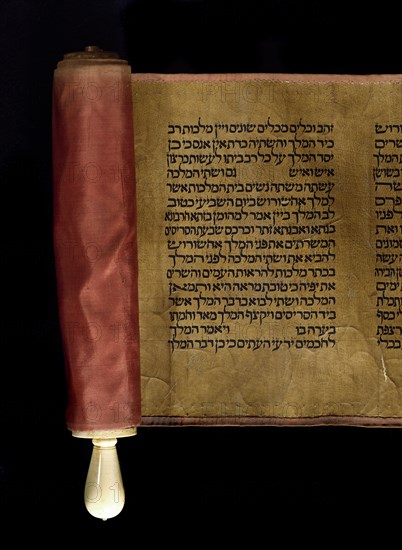 המלך
זהב וכלים מכלים שונים ויין מלכות רב
כיד המלך והשתיה כדת אין אנס כי כן
יסד המלך על כל רב ביתו לעשות כרצון
איש ואיש גם ושתי המלכה
עשתה משתה נשים בית המלכות אשר
למלך אחשורוש ביום השביעי כטוב
לב המלך ביין אמר למהומן בזתא חרבונא
בגתא ואבגתא זתר וכרכס שבעת הסריסים
המשרתים את פני המלך אחשורוש
להביא את ושתי המלכה לפני המלך
בכתר מלכות להראות העמים והשרים
את יפיה כי טובת מראה היא ותמאן
המלכה ושתי לבוא בדבר המלך אשר
ביד הסריסים ויקצף המלך מאד וחמתו
בערה בו ויאמר המלך
לחכמים ידעי העתים כי כן דבר המלך